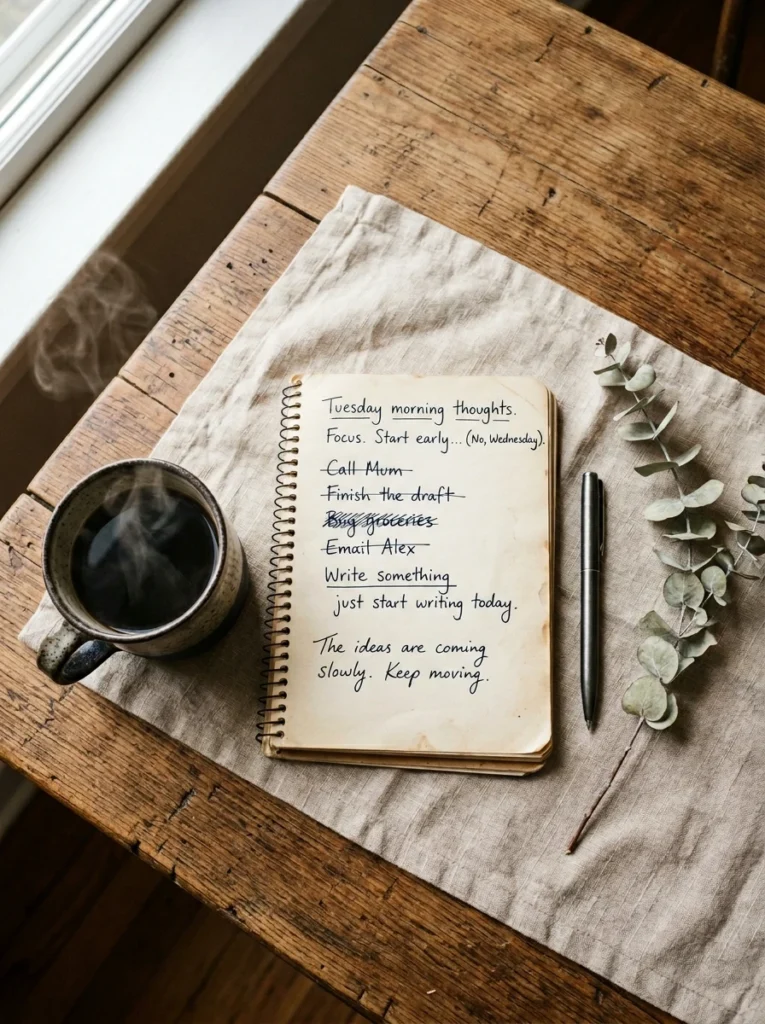 Tuesday morning thoughts.
Focus. Start early... (No, Wednesday).
Call Mum
Finish the draft
Buy groceries
Email Alex
Write something
just start writing today.
The ideas are coming
slowly. Keep moving.